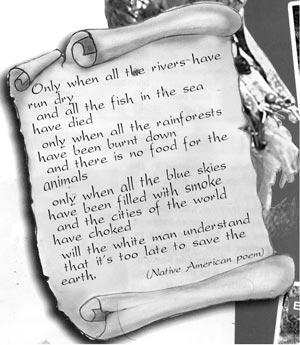 Only when all the rivers have
run dry
and all the fish in the sea
have died
only when all the rainforests
have been burnt down
and there is no food for the
animals
only when all the blue skies
have been filled with smoke
and the cities of the world
have choked
will the white man understand
that it's too late to save the
earth.
(Native American poem)